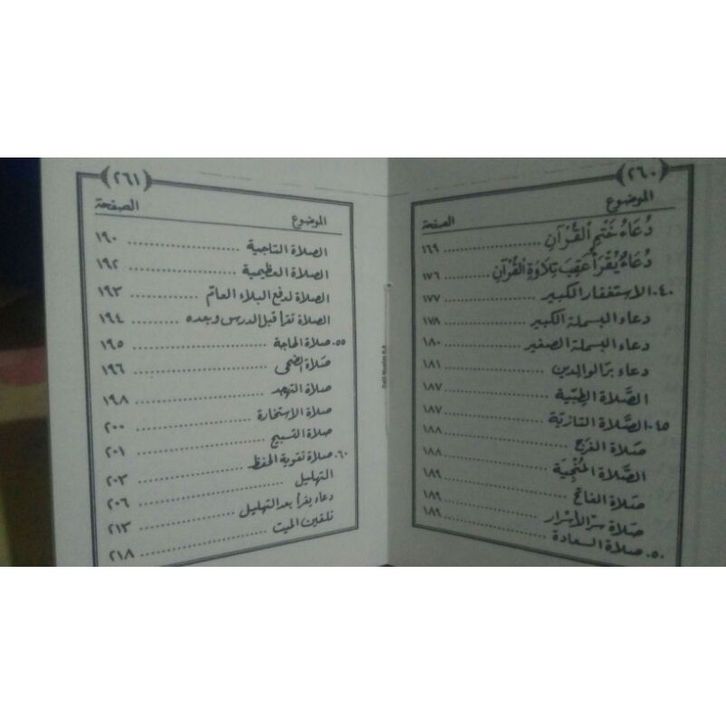 (٢٦٠)
الموضوع الصفحة
دُعَاءُ خَتْمِ الْقُرْآنِ .......... ١٦٩
دُعَاءٌ يُقْرَأُ عَقِبَ تِلَاوَةِ الْقُرْآنِ .......... ١٧٦
٤٠. الاستغفار الكبير .......... ١٧٧
دعاء البسملة الكبير .......... ١٧٨
دعاء البسملة الصغير .......... ١٨٠
دعاء بر الوالدين .......... ١٨١
الصَّلاة الطِبِّيَة .......... ١٨٧
٤٥. الصَّلاة النارية .......... ١٨٧
صَلاة الفرج .......... ١٨٨
الصَّلاة المُنْجِيَة .......... ١٨٨
صَلاة الفاتح .......... ١٨٩
صَلاة سرّ الأسرار .......... ١٨٩
٥٠. صلاة السعادة .......... ١٨٩
(٢٦١)
الموضوع الصفحة
الصلاة التاجية .......... ١٩٠
الصلاة العظيمية .......... ١٩٢
الصلاة لدفع البلاء العام .......... ١٩٣
الصلاة تقرأ قبل الدرس وبعده .......... ١٩٤
٥٥. صلاة الحاجة .......... ١٩٥
صَلاة الضحى .......... ١٩٦
صلاة التهجد .......... ١٩٨
صلاة الاستخارة .......... ٢٠٠
صلاة التسبيح .......... ٢٠١
٦٠. صلاة تقوية الحفظ .......... ٢٠٣
التهليل .......... ٢٠٦
دعاء يقرأ بعد التهليل .......... ٢١٣
تلقين الميت .......... ٢١٨